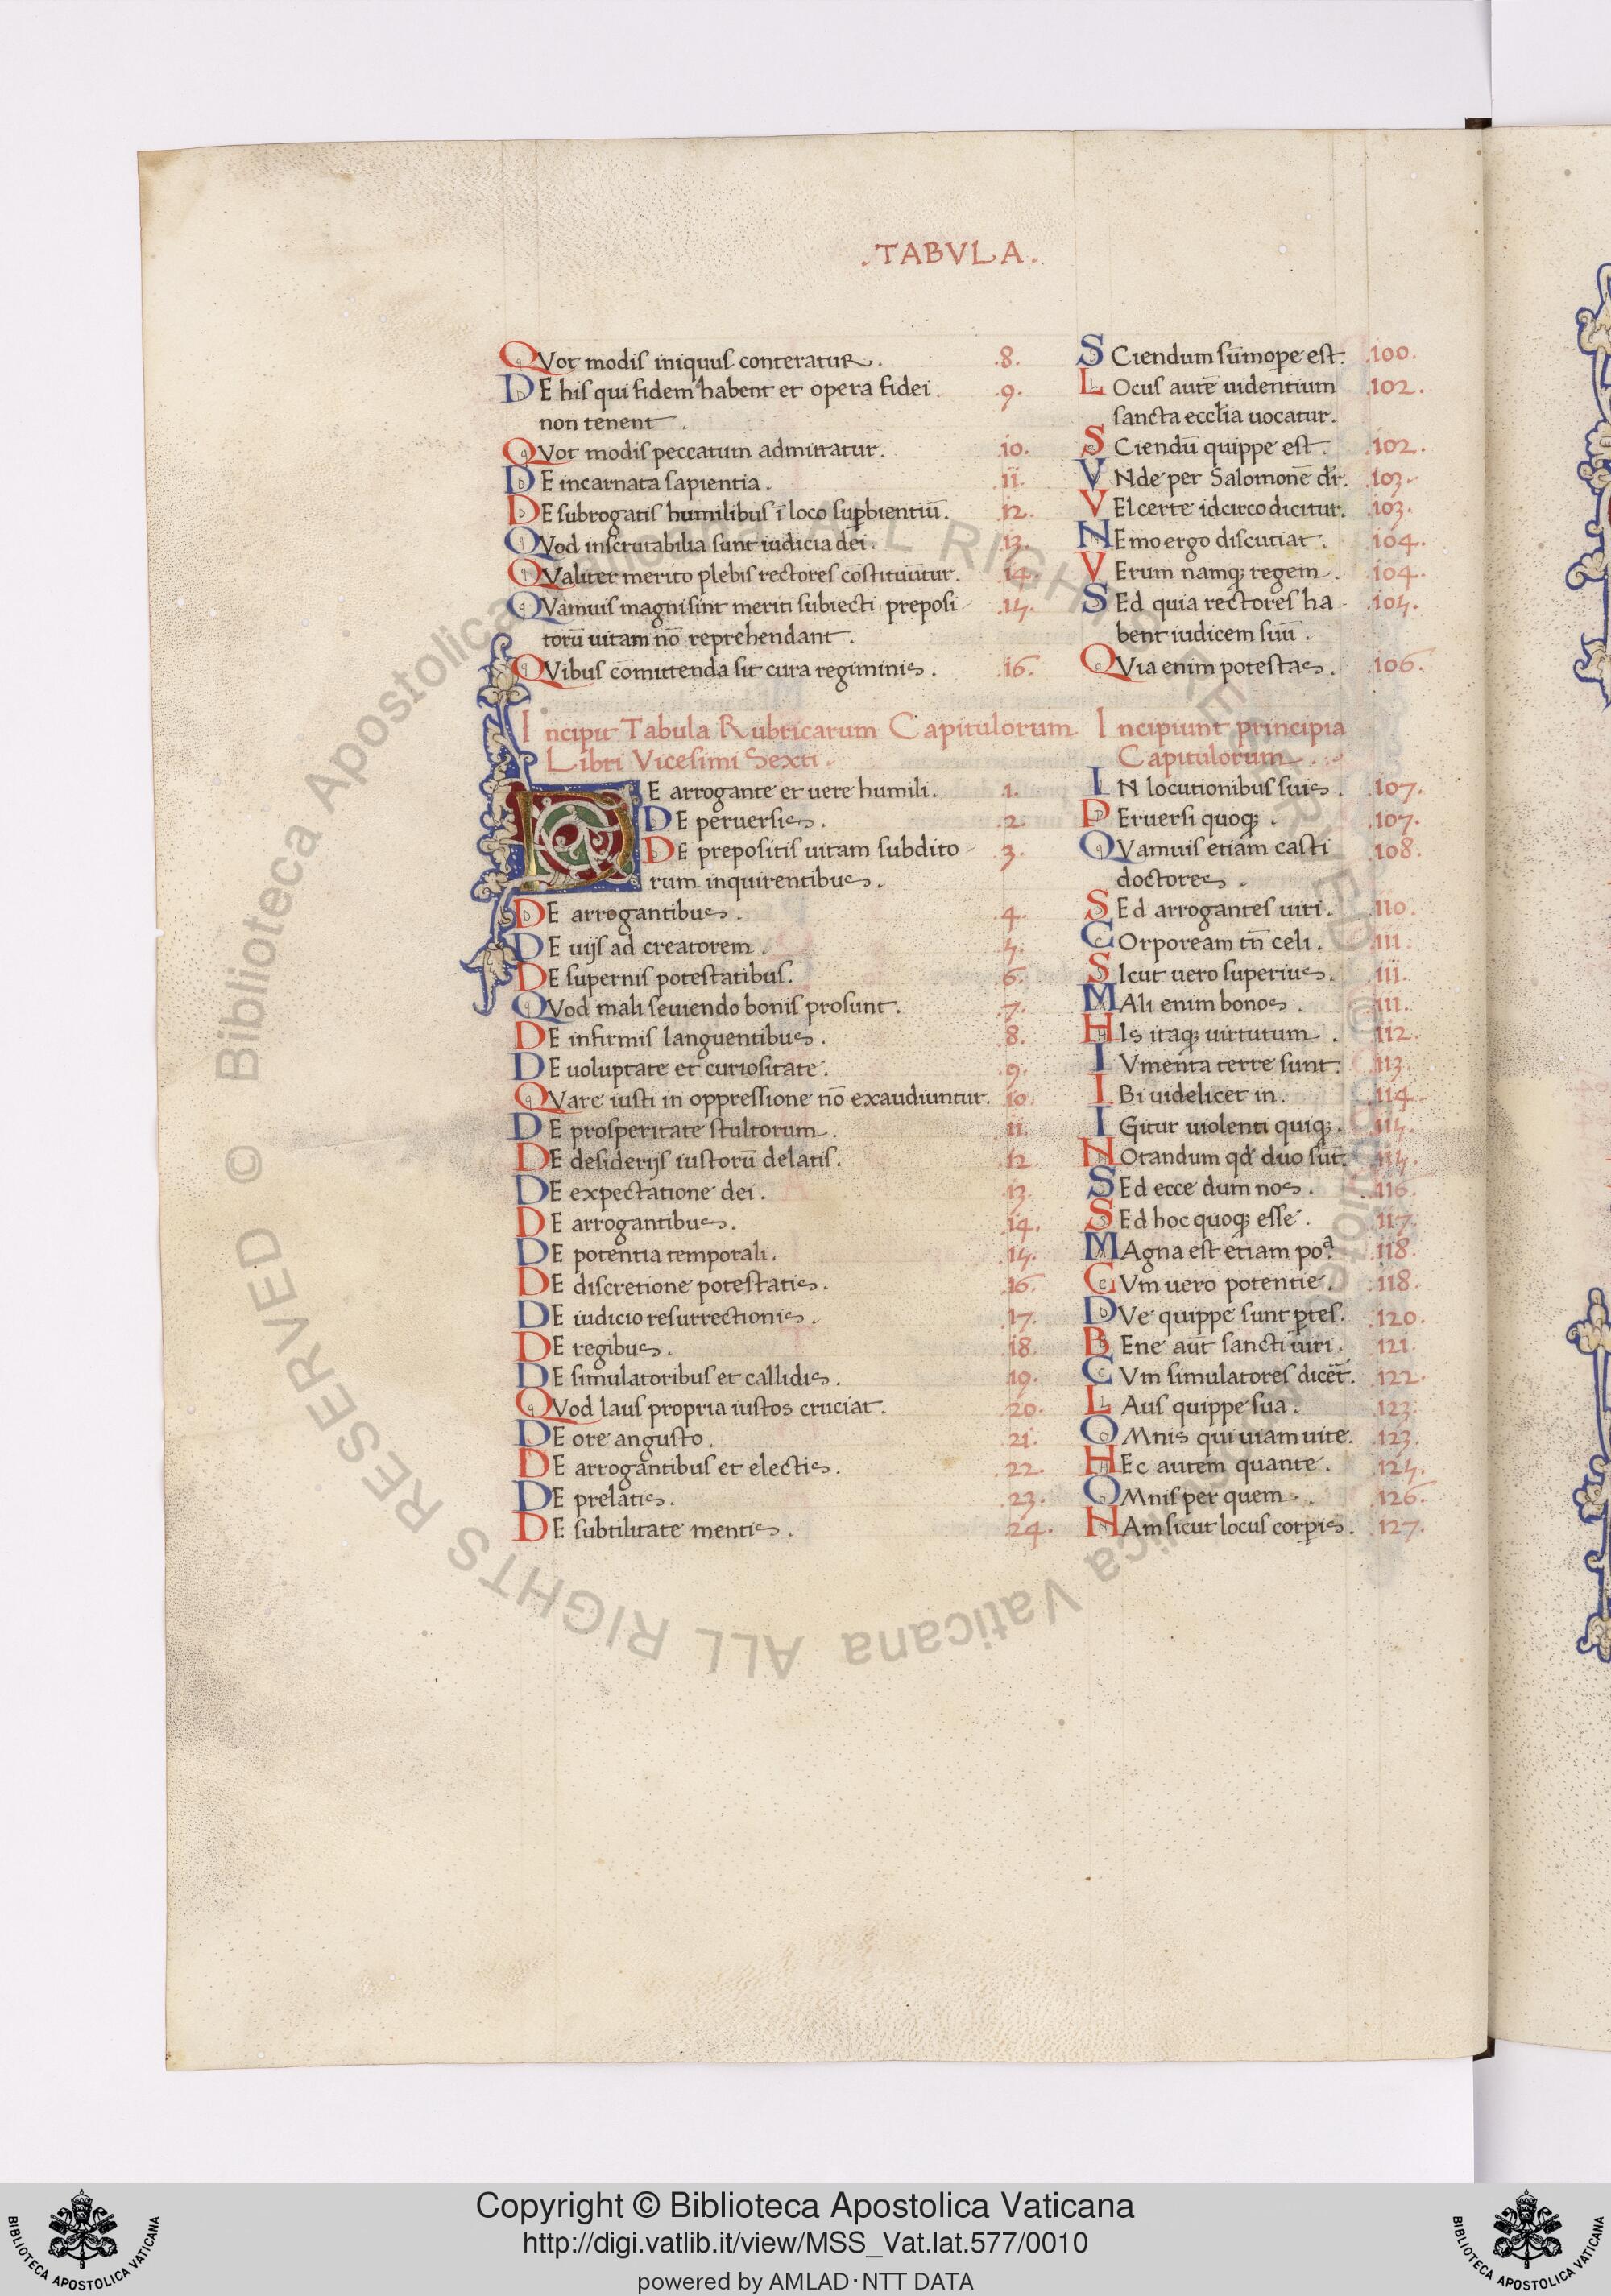 .TABVLA.
QVot modis iniquus conteratur. .8. SCiendum sūmope est. .100.
DE his qui fidem habent et opera fidei .9. LOcus autē uidentium .102.
non tenent. sancta ecclīa uocatur.
QVot modis peccatum admittatur. .10. SCiendū quippe est. .102.
DE incarnata sapientia. .11. VNde per Salomonē dr̄. .103.
DE subrogatis humilibus ī loco supbientiū. .12. VEl certe idcirco dicitur. .103.
QVod inscrutabilia sunt iudicia dei. .13. NEmo ergo discutiat. .104.
QValiter merito plebis rectores cōstituūtur. .14. VErum namq; regem. .104.
QVamuis magni sint meriti subiecti preposi .15. SEd quia rectores ha .105.
torū uitam nō reprehendant. bent iudicem suū.
QVibus cōmittenda sit cura regiminis. .16. QVia enim potestas. .106.
Incipit Tabula Rubricarum Capitulorum Incipiunt principia
Libri Vicesimi Sexti. Capitulorum.
DE arrogante et uere humili. .1. IN locutionibus suis. .107.
DE peruersis. .2. PEruersi quoq;. .107.
DE prepositis uitam subdito .3. QVamuis etiam casti .108.
rum inquirentibus. doctores.
DE arrogantibus. .4. SEd arrogantes uiri. .110.
DE uijs ad creatorem. .5. COrpoream tn̄ celi. .111.
DE supernis potestatibus. .6. SIcut uero superius. .111.
QVod mali seuiendo bonis prosunt. .7. MAli enim bonos. .111.
DE infirmis languentibus. .8. HIs itaq; uirtutum. .112.
DE uoluptate et curiositate. .9. IVmenta terre sunt. .113.
QVare iusti in oppressione nō exaudiuntur. .10. IBi uidelicet in. .114.
DE prosperitate stultorum. .11. IGitur uiolenti quiq;. .115.
DE desiderijs iustorū delatis. .12. NOtandum qd duo sūt. .115.
DE expectatione dei. .13. SEd ecce dum nos. .116.
DE arrogantibus. .14. SEd hoc quoq; esse. .117.
DE potentia temporali. .15. MAgna est etiam poª. .118.
DE discretione potestatis. .16. CVm uero potentie. .118.
DE iudicio resurrectionis. .17. DVe quippe sunt ptes. .120.
DE regibus. .18. BEne aūt sancti uiri. .121.
DE simulatoribus et callidis. .19. CVm simulatores dicēt. .122.
QVod laus propria iustos cruciat. .20. LAus quippe sua. .123.
DE ore angusto. .21. OMnis qui uiam uite. .123.
DE arrogantibus et electis. .22. HEc autem quante. .125.
DE prelatis. .23. OMnis per quem. .126.
DE subtilitate mentis. .24. NAm sicut locus corpis. .127.
© Biblioteca Apostolica Vaticana ALL RIGHTS RESERVED © Biblioteca Apostolica Vaticana ALL RIGHTS RESERVED
Copyright © Biblioteca Apostolica Vaticana
http://digi.vatlib.it/view/MSS_Vat.lat.577/0010
powered by AMLAD·NTT DATA
BIBLIOTECA APOSTOLICA VATICANA
BIBLIOTECA APOSTOLICA VATICANA